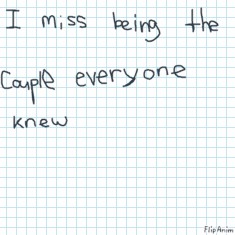 I miss being the
Couple everyone
knew
FlipAnim